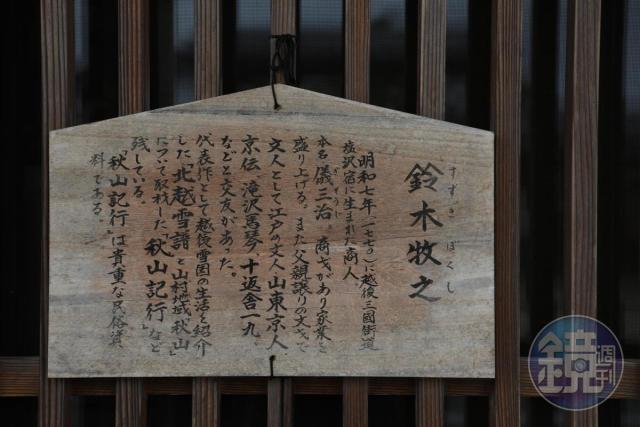 鈴木牧之
すずき ぼくし
明和七年(一七七〇)に越後三國街道
塩沢宿に生まれた商人。
本名 儀三治。商才があり家業を
ぎそうじ
盛り上げる。また父親譲りの文才で
文人として江戸の文人・山東京人
京伝、滝沢馬琴、十返舎一九、
などと交友があった。
代表作として越後雪国の生活を紹介
した「北越雪譜」と山村地域"秋山"
について取材した「秋山記行」など
残している。
「秋山記行」は貴重な民俗資
料である。
鏡週刊